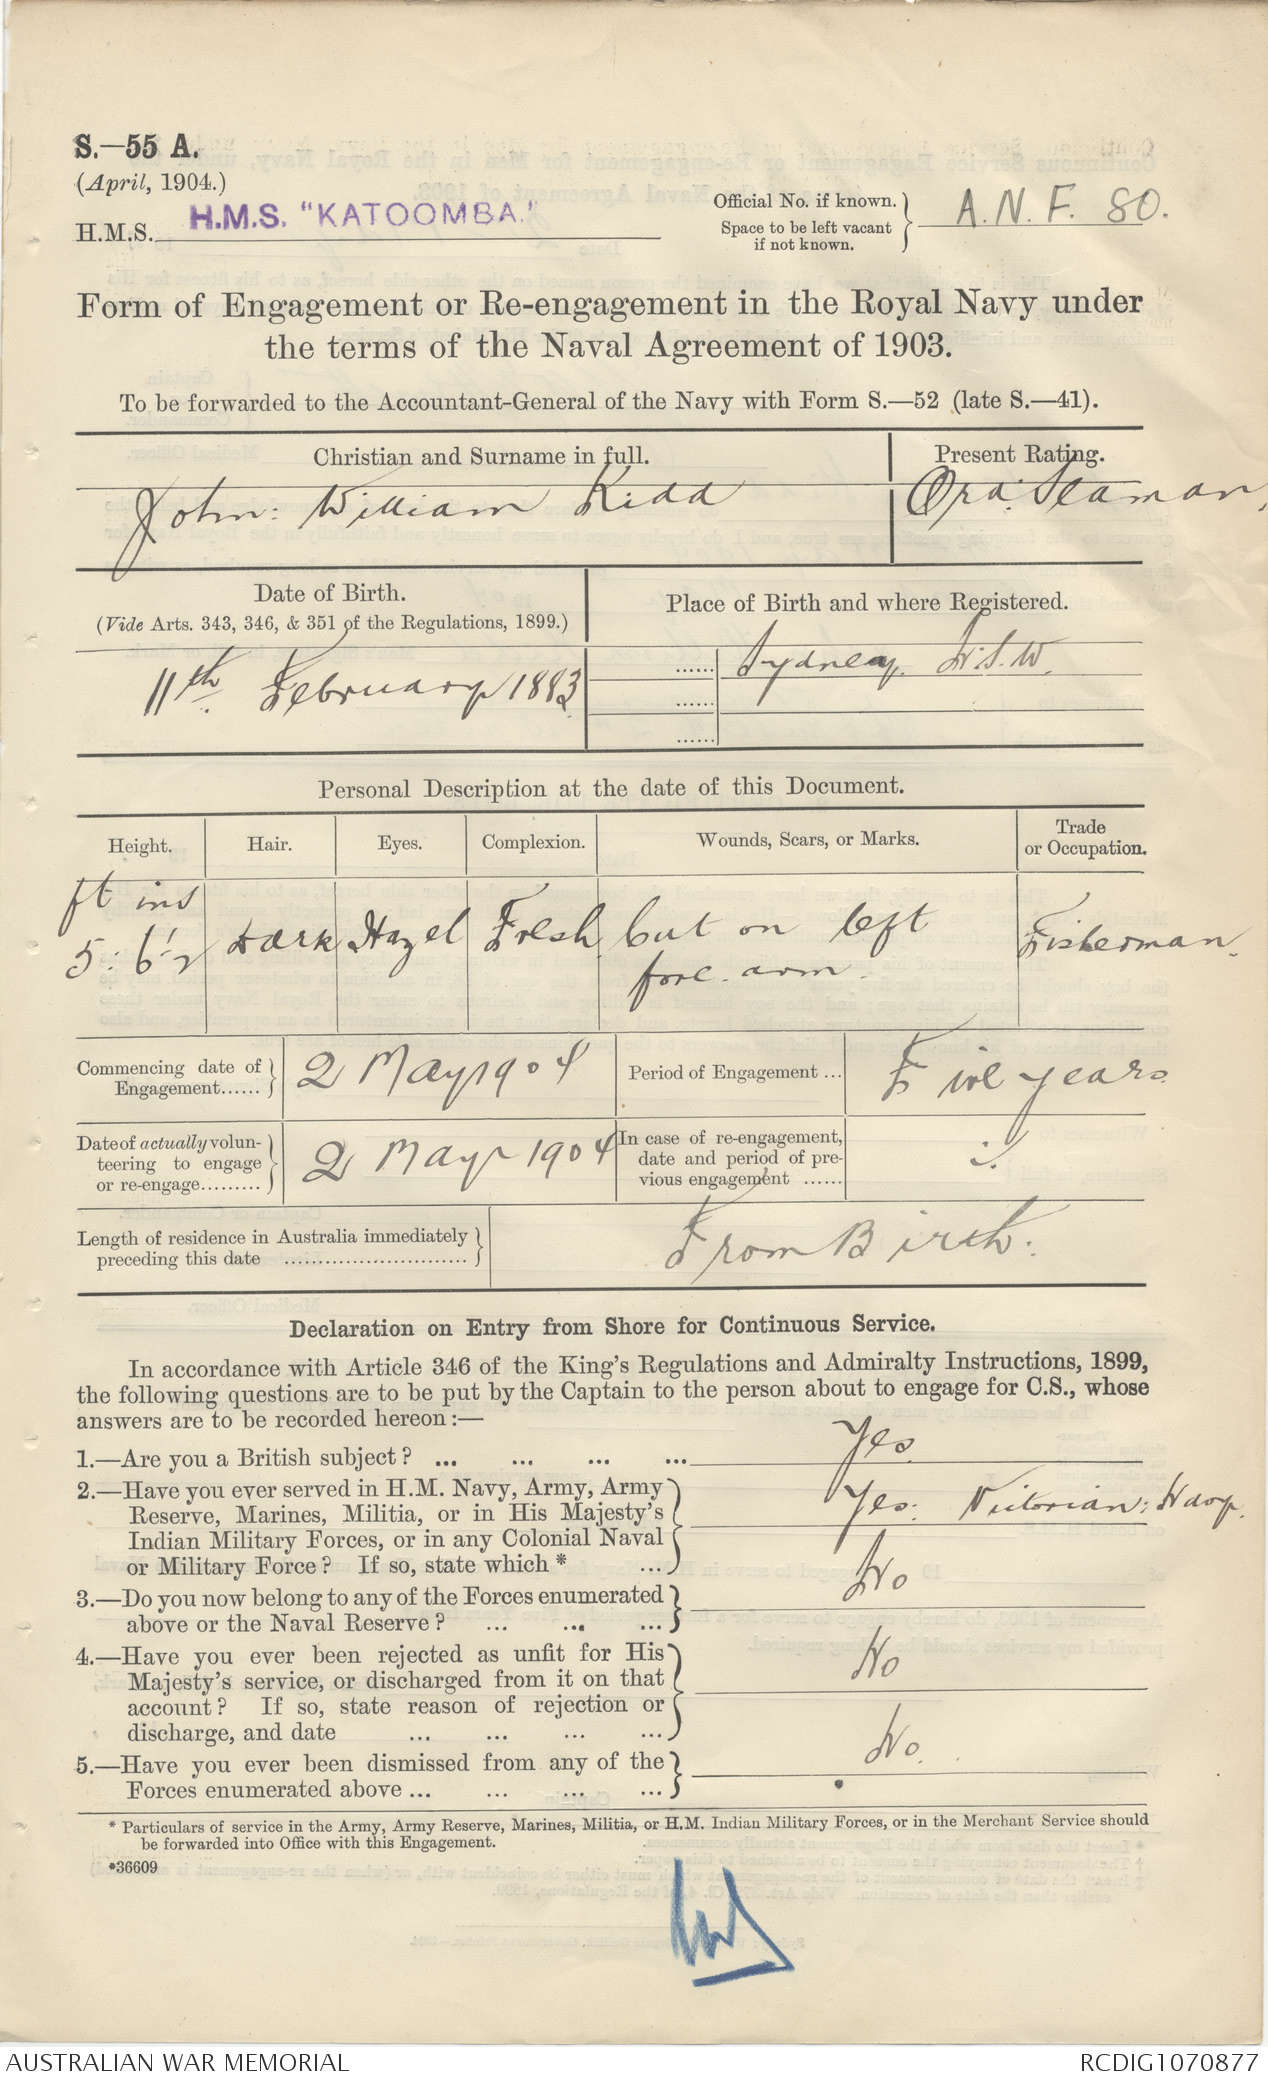 S.—55 A.
(April, 1904.)
H.M.S. H.M.S. "KATOOMBA."
Official No. if known.
Space to be left vacant
if not known.
A.N.F. 80.
Form of Engagement or Re-engagement in the Royal Navy under
the terms of the Naval Agreement of 1903.
To be forwarded to the Accountant-General of the Navy with Form S.—52 (late S.—41).
Christian and Surname in full.
Present Rating.
John: William Kidd
Ord: Seaman.
Date of Birth.
(Vide Arts. 343, 346, & 351 of the Regulations, 1899.)
Place of Birth and where Registered.
11th. February 1883
...... Sydney. N.S.W.
......
......
Personal Description at the date of this Document.
Height. Hair. Eyes. Complexion. Wounds, Scars, or Marks. Trade
or Occupation.
ft ins
5: 6½ Dark Hazel Fresh Cut on left
fore. arm. Fisherman.
Commencing date of
Engagement......
2 May 1904
Period of Engagement ...
Five years
Date of actually volun-
teering to engage
or re-engage.........
2 May 1904
In case of re-engagement,
date and period of pre-
vious engagement ......
Length of residence in Australia immediately
preceding this date ..............................
From Birth.
Declaration on Entry from Shore for Continuous Service.
In accordance with Article 346 of the King's Regulations and Admiralty Instructions, 1899,
the following questions are to be put by the Captain to the person about to engage for C.S., whose
answers are to be recorded hereon:—
1.—Are you a British subject? ... ... ... ...
Yes.
2.—Have you ever served in H.M. Navy, Army, Army
Reserve, Marines, Militia, or in His Majesty's
Indian Military Forces, or in any Colonial Naval
or Military Force? If so, state which * ...
Yes: Victorian: Navy.
3.—Do you now belong to any of the Forces enumerated
above or the Naval Reserve? ... ... ...
No
4.—Have you ever been rejected as unfit for His
Majesty's service, or discharged from it on that
account? If so, state reason of rejection or
discharge, and date ... ... ... ...
No
5.—Have you ever been dismissed from any of the
Forces enumerated above ... ... ... ...
No.
* Particulars of service in the Army, Army Reserve, Marines, Militia, or H.M. Indian Military Forces, or in the Merchant Service should
be forwarded into Office with this Engagement.
*36609
AUSTRALIAN WAR MEMORIAL
RCDIG1070877